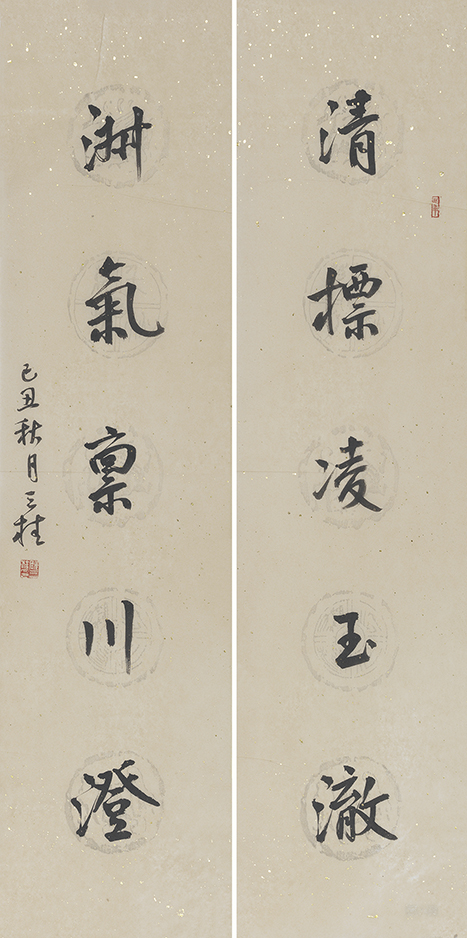 清標凌玉澈
淵氣稟川澄
己丑秋月三桂